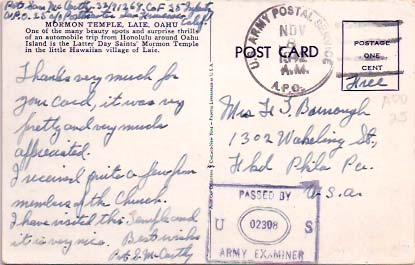 Pvt. Sam McCarthy 33191267, Co F 35 Infantry
A.P.O. 25 c/o Postmaster San Francisco Calif.
MORMON TEMPLE, LAIE, OAHU
One of the many beauty spots and surprise thrills
of an automobile trip from Honolulu around Oahu
Island is the Latter Day Saints' Mormon Temple
in the little Hawaiian village of Laie.
Thanks very much for
your card, it was very
pretty and very much
appreciated.
I received quite a few from
members of the Church.
I have visited this Temple and
it is very nice. Best wishes
Pvt S McCarthy
U.S. ARMY POSTAL SERVICE
NOV
A.M.
A.P.O.
POST CARD
POSTAGE
ONE
CENT
Free
APO
25
Mrs H J Borrough
1302 Wakeling St,
Fkd Phila Pa.
U.S.a.
PASSED BY
U 02308 S
ARMY EXAMINER